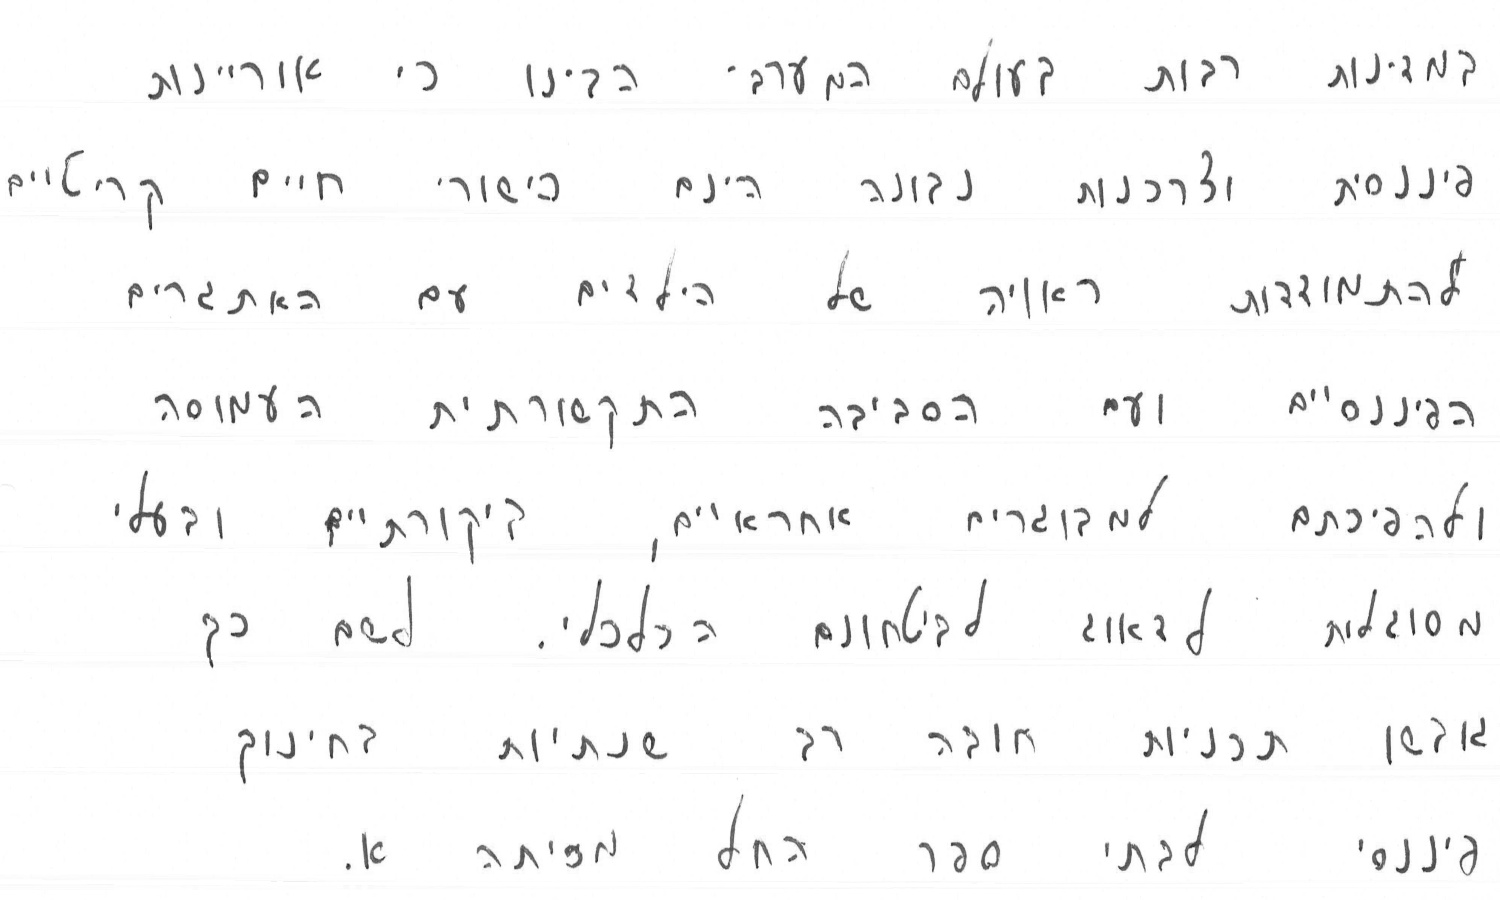 במדינות רבות בעולם המערבי הבינו כי אוריינות
פיננסית וצרכנות נבונה הינם כישורי חיים קריטיים
להתמודדות ראויה של הילדים עם האתגרים
הפיננסיים ועם הסביבה התקשורתית העמוסה
ולהפיכתם למבוגרים אחראיים, ביקורתיים ובעלי
מסוגלות לדאוג לביטחונם הכלכלי. לשם כך
גובשו תכניות חובה רב שנתיות בחינוך
פיננסי לבתי ספר החל מכיתה א.